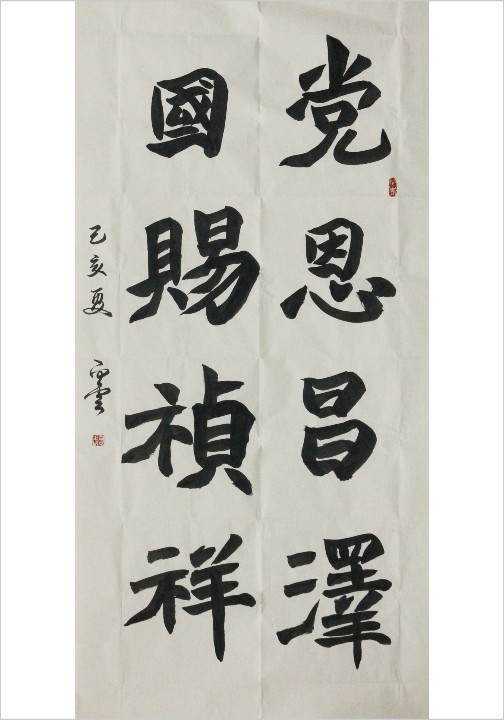 党恩昌澤
國賜禎祥
己亥夏